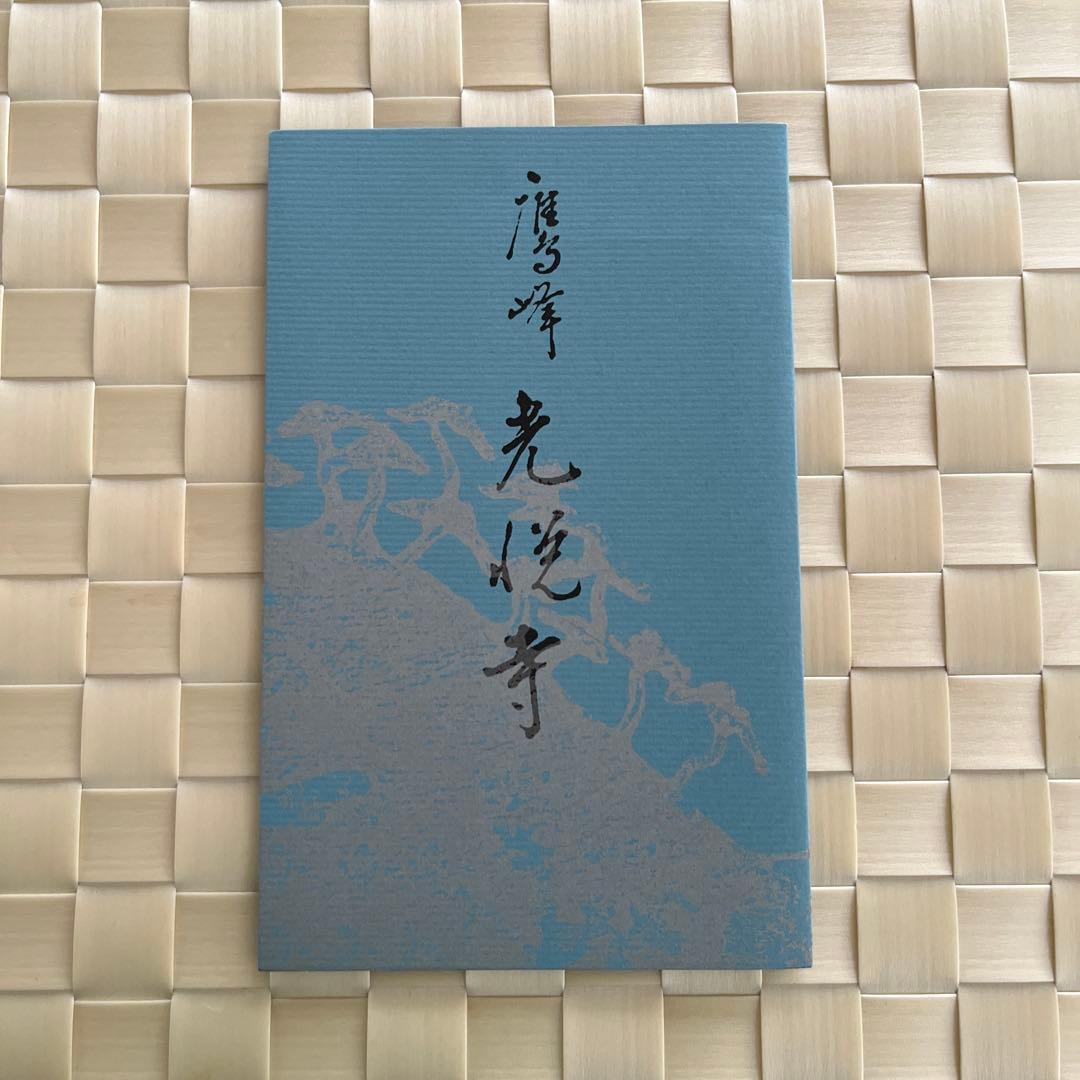 鷹峰 光悦寺